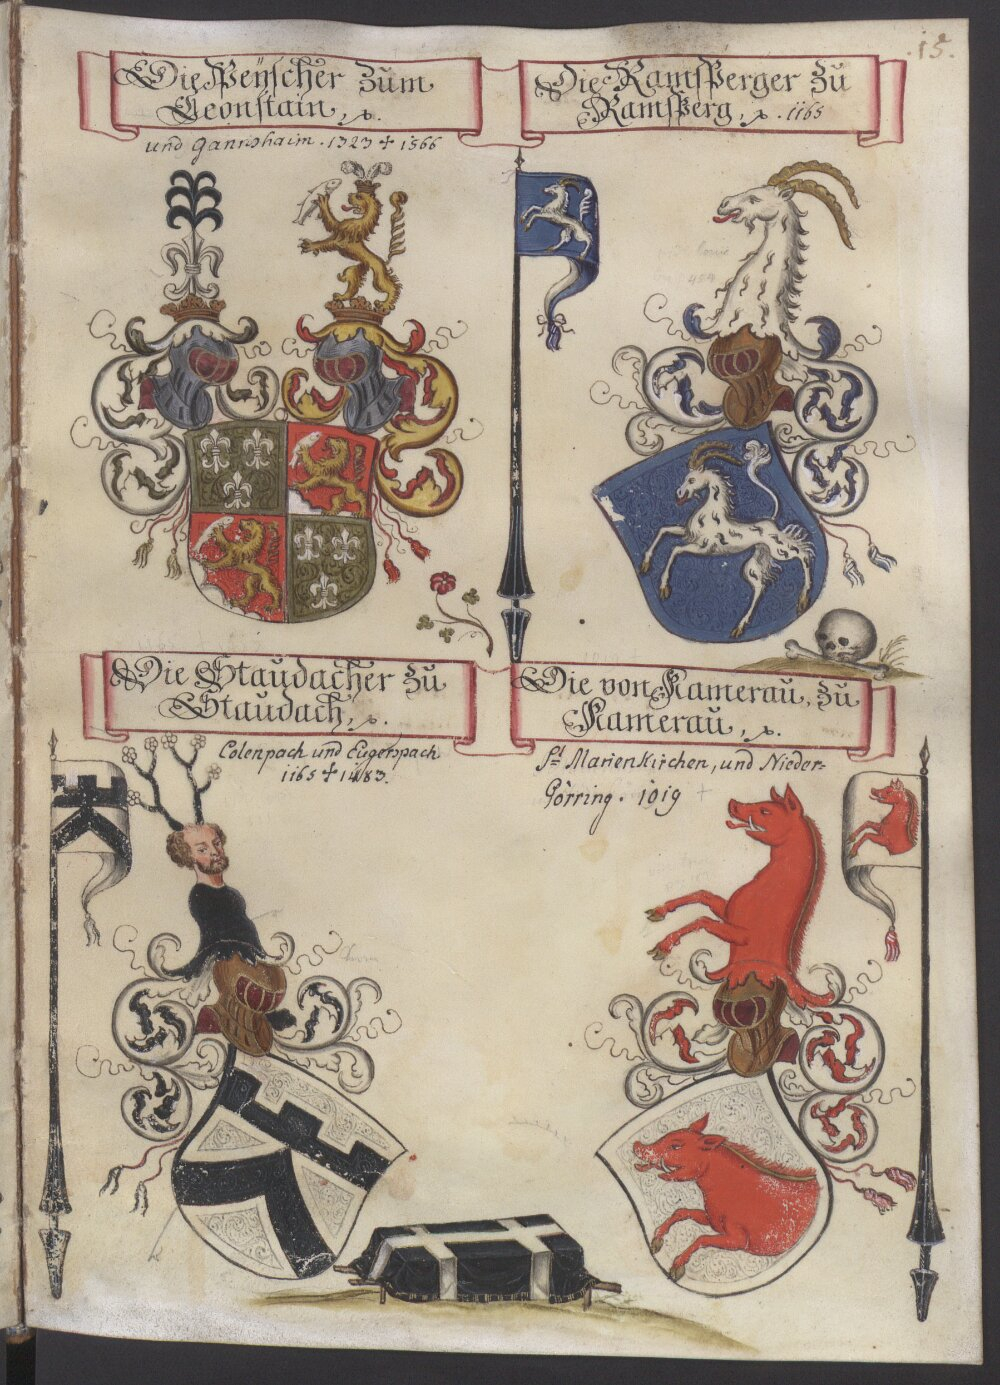 15.
Die Peÿscher zum
Leonstain, ꝛc.
und Gannshaim . 1323 ✝ 1566
Die Ramsperger zu
Ramsperg, ꝛc. 1165
Die Staudacher zu
Staudach, ꝛc.
Colenpach und Eugerspach
1165 ✝ 1483.
Die von Kamerau, zu
Kamerau, ꝛc.
St Marienkirchen, und Nieder-
Görring . 1019 ✝